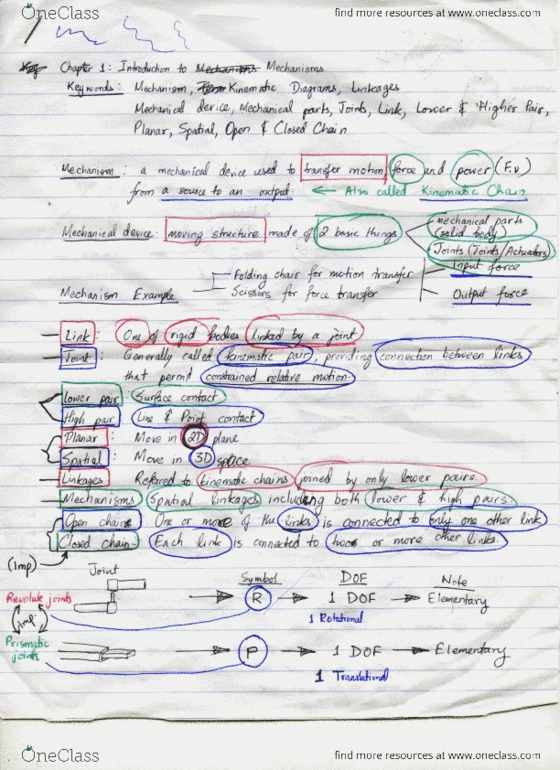 OneClass
find more resources at www.oneclass.com
Chapter 1: Introduction to Mechanisms
Keywords: Mechanism, Kinematic Diagrams, Linkages
Mechanical device, Mechanical parts, Joints, Link, Lower & Higher Pair,
Planar, Spatial, Open & Closed Chain
Mechanism: a mechanical device used to transfer motion, force and power (F.v)
from a source to an output. ← Also called Kinematic Chain
Mechanical device: moving structure made of 2 basic things
mechanical parts (solid body)
Joints (Joints/Actuators)
Mechanism Example
Folding chair for motion transfer
Scissors for force transfer
Input force
Output force
Link: One of rigid bodies linked by a joint
Joint: Generally called kinematic pair, providing connection between links
that permit constrained relative motion.
lower pair: Surface contact
High pair: Line & Point contact
Planar: Move in 2D plane
Spatial: Move in 3D space
Linkages: Refered to kinematic chains joined by only lower pairs.
Mechanisms: Spatial linkages including both lower & high pairs.
Open chain: One or more of the links is connected to only one other link
Closed chain: Each link is connected to two or more other links.
(Imp)
Joint Symbol DOF Note
Revolute joints R 1 DOF Elementary
1 Rotational
(Imp)
Prismatic joints P 1 DOF Elementary
1 Translational
OneClass
find more resources at www.oneclass.com